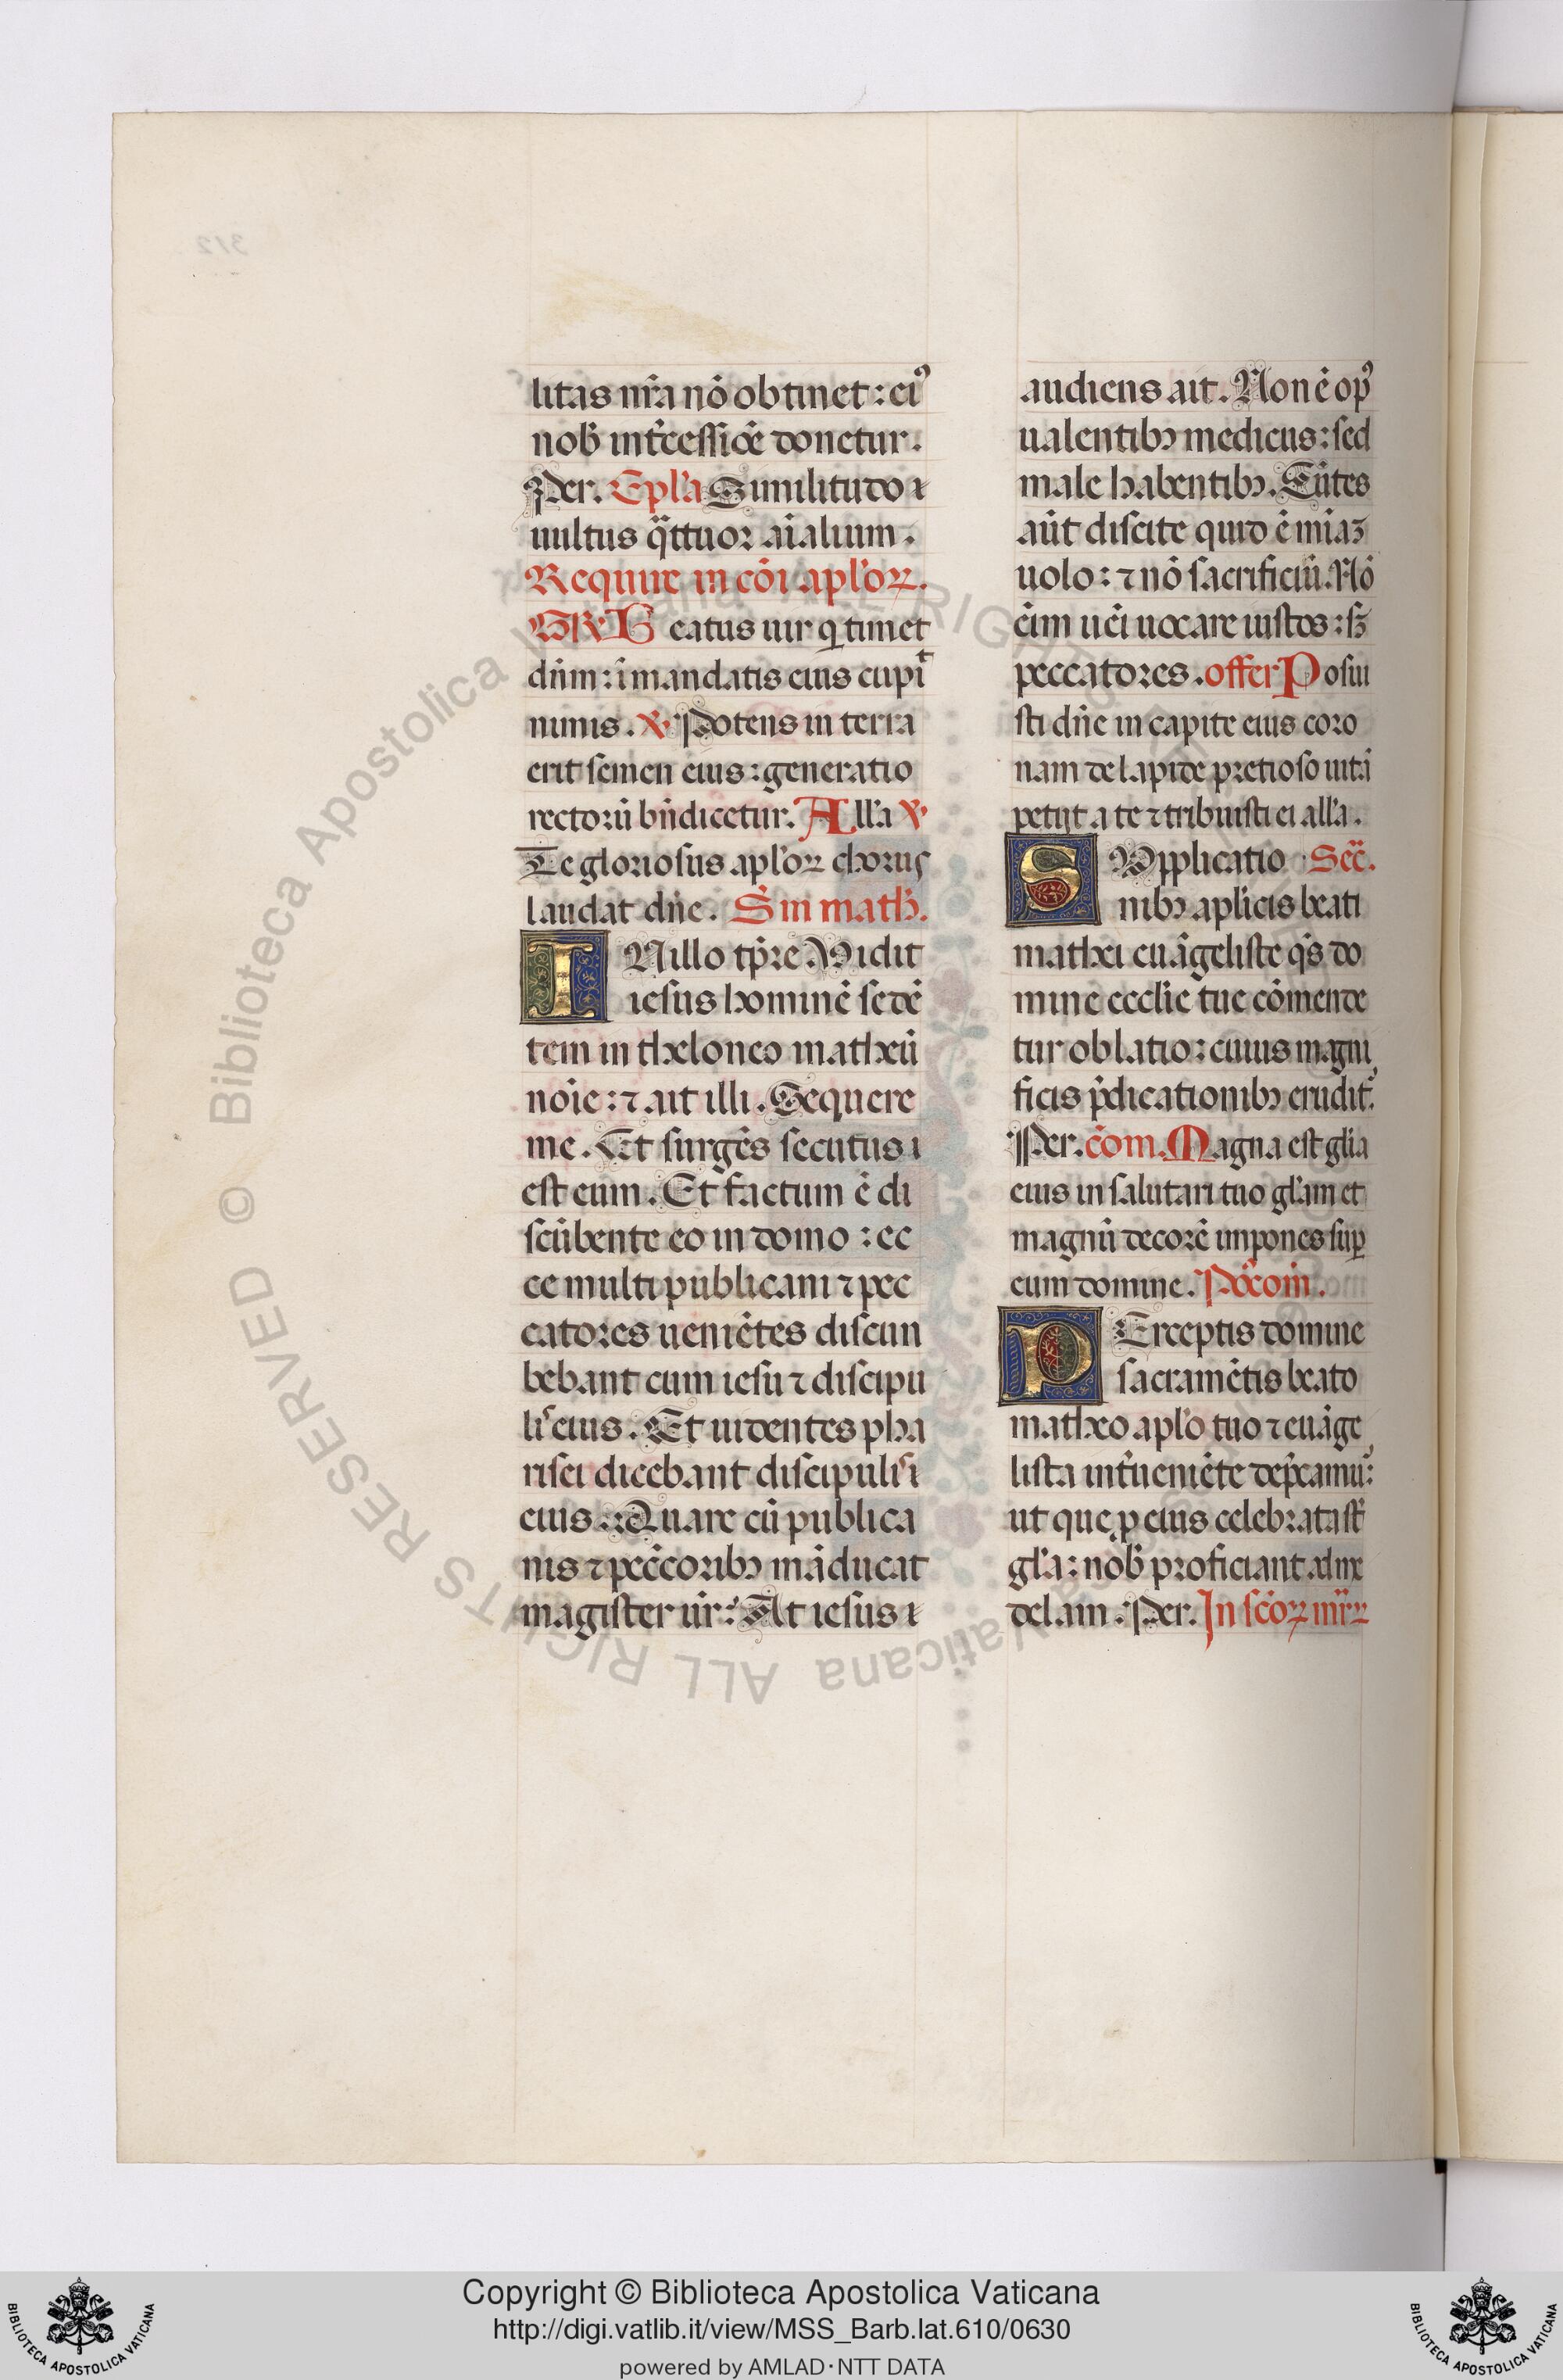 litas nr̄a nō obtinet : ei⁹
nob̄ int̄cessiōe donetur .
Per . Ep̄la Similitudo ⁊
uultus q̄ttuoꝛ aīalium .
Require in cōi apl̓oꝝ .
GR̄ Beatus uir q̄ timet
dn̄m : ī mandatis eius cupiᵗ
nimis . ℣ Potens in terra
erit semen eius : generatio
rectoꝛū bn̄dicetur . All̓a ℣
Te glorıosus apl̓oꝝ chorus
laudat dn̄e . S̄ m math̄ .
IN illo tp̄ꝛe Vidit
iesus hominē sedē
tem in theloneo matheū
nōie : ⁊ ait illi . Sequere
me . Et surgēs secutus ı
est eum . Et factum ē di
scūbente eo in domo : ec
ce multi publicani ⁊ pec
catoꝛes ueniētes discun
bebant cum iesu ⁊ discipu
liˢ eius . Et uidentes pha
risei dicebant discipulis ı
eius : Quare cū publica
nis ⁊ pecc̄oꝛibꝫ māducat
magister ur̄ : At iesus ı
audiens ait . Non ē op⁹
ualentibꝫ medicus : sed
male habentibꝫ . Eūtes
aūt discite quid ē mīaꝫ
uolo : ⁊ nō sacrificiū . Nō
eīm uēi uocare iustos : sꝫ
peccatoꝛes . offer Posui
sti dn̄e in capite eius coꝛo
nam de lapide pꝛetioso uitā
petijt a te ⁊ tribuisti ei all̓a .
SVpplicatio Sec̄ .
nibꝫ apl̓icis beati
mathei euāgeliste q̄s do
mine eccl̓ie tue cōmende
tur oblatio : cuius magni
ficis p̄dicationibꝫ erudit᷒ .
Per . cōm . Magna est gl̓ia
eius in salutari tuo gl̓am et
magnū decoꝛē impones suꝑ
eum domine . Po᷒com̄ .
PErceptis domine
sacramētis beato
matheo apl̓o tuo ⁊ euāge
lista int̄ueniēte dep̄camu⁹ :
ut que ꝓ eius celebꝛata st̄
gl̓a : nob̄ pꝛoficiant ad me
delam . Per . In sc̄oꝝ mr̄ꝝ
312
© Biblioteca Apostolica Vaticana ALL RIGHTS RESERVED
Copyright © Biblioteca Apostolica Vaticana
http://digi.vatlib.it/view/MSS_Barb.lat.610/0630
powered by AMLAD·NTT DATA
BIBLIOTECA APOSTOLICA VATICANA
BIBLIOTECA APOSTOLICA VATICANA